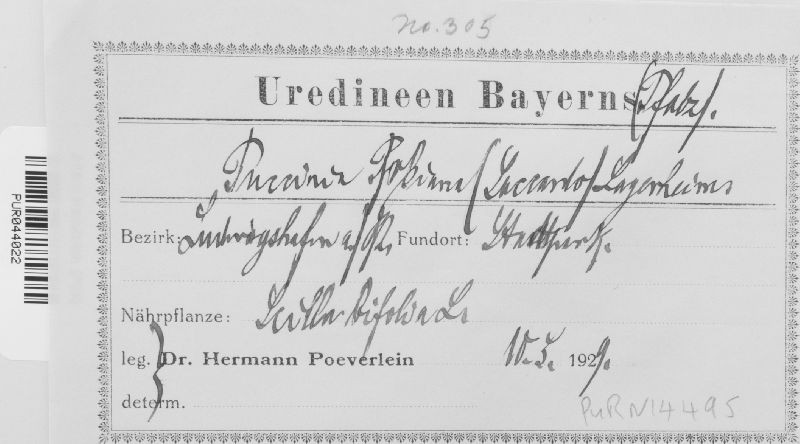 No. 305
Uredineen Bayerns (Pfalz).
Puccinia Roßiana (Saccardo) Lagerheim
Bezirk: Ludwigshafen a/Rh. Fundort: Stadtpark.
Nährpflanze: Scilla bifolia L.
leg. Dr. Hermann Poeverlein 10. 5. 1929.
determ.
PUR N14495
PUR044022